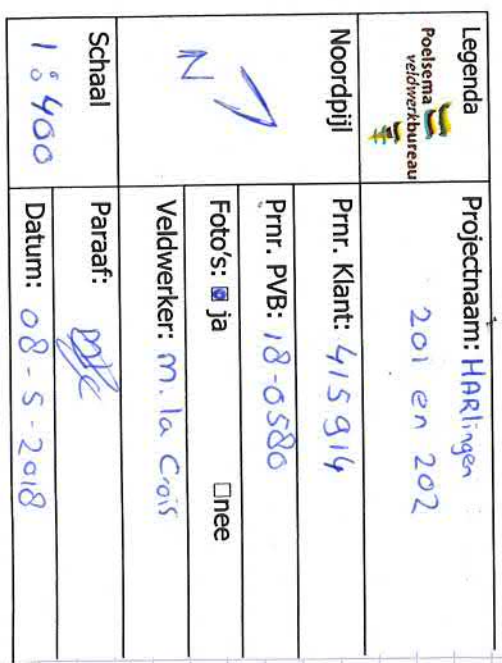 Legenda
Poelsema
veldwerkbureau
Projectnaam: HARlingen
201 en 202
Noordpijl
N
Prnr. Klant: 415914
Prnr. PVB: 18-0580
Foto's: ja nee
Veldwerker: m. la Crois
Schaal
1:400
Paraaf:
Datum: 08-5-2018